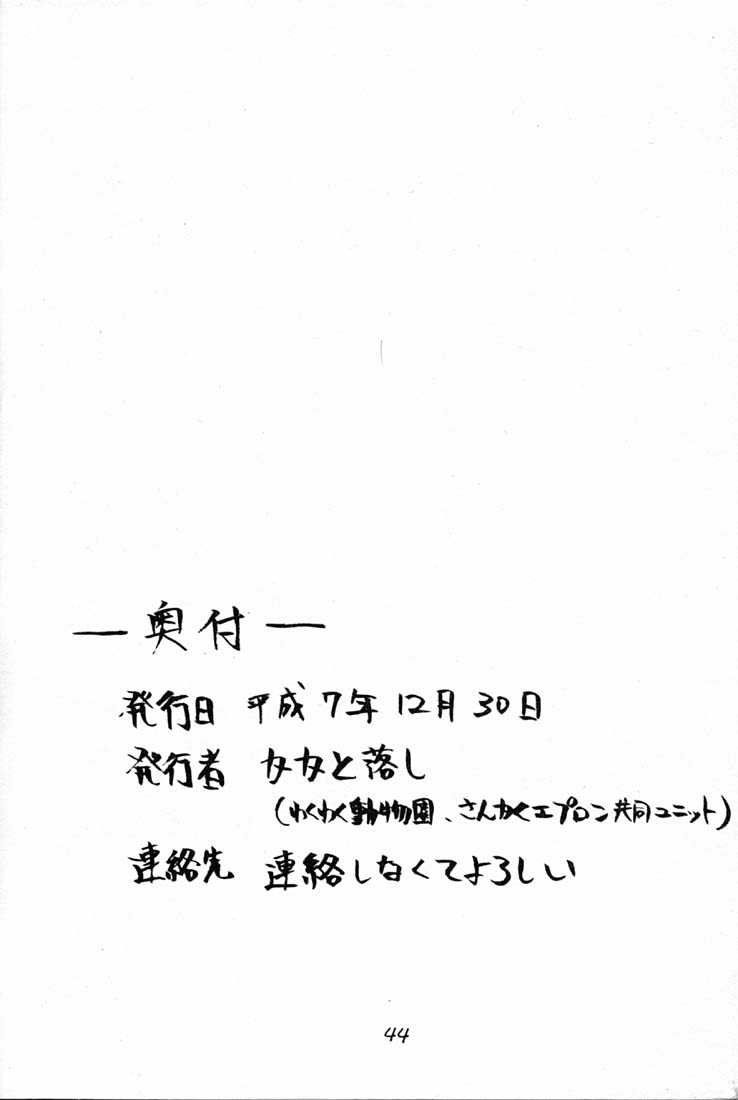 ― 奥付 ―
発行日 平成7年12月30日
発行者 カカと落し
(わくわく動物園、さんかくエプロン共同ユニット)
連絡先 連絡しなくてよろしい
44